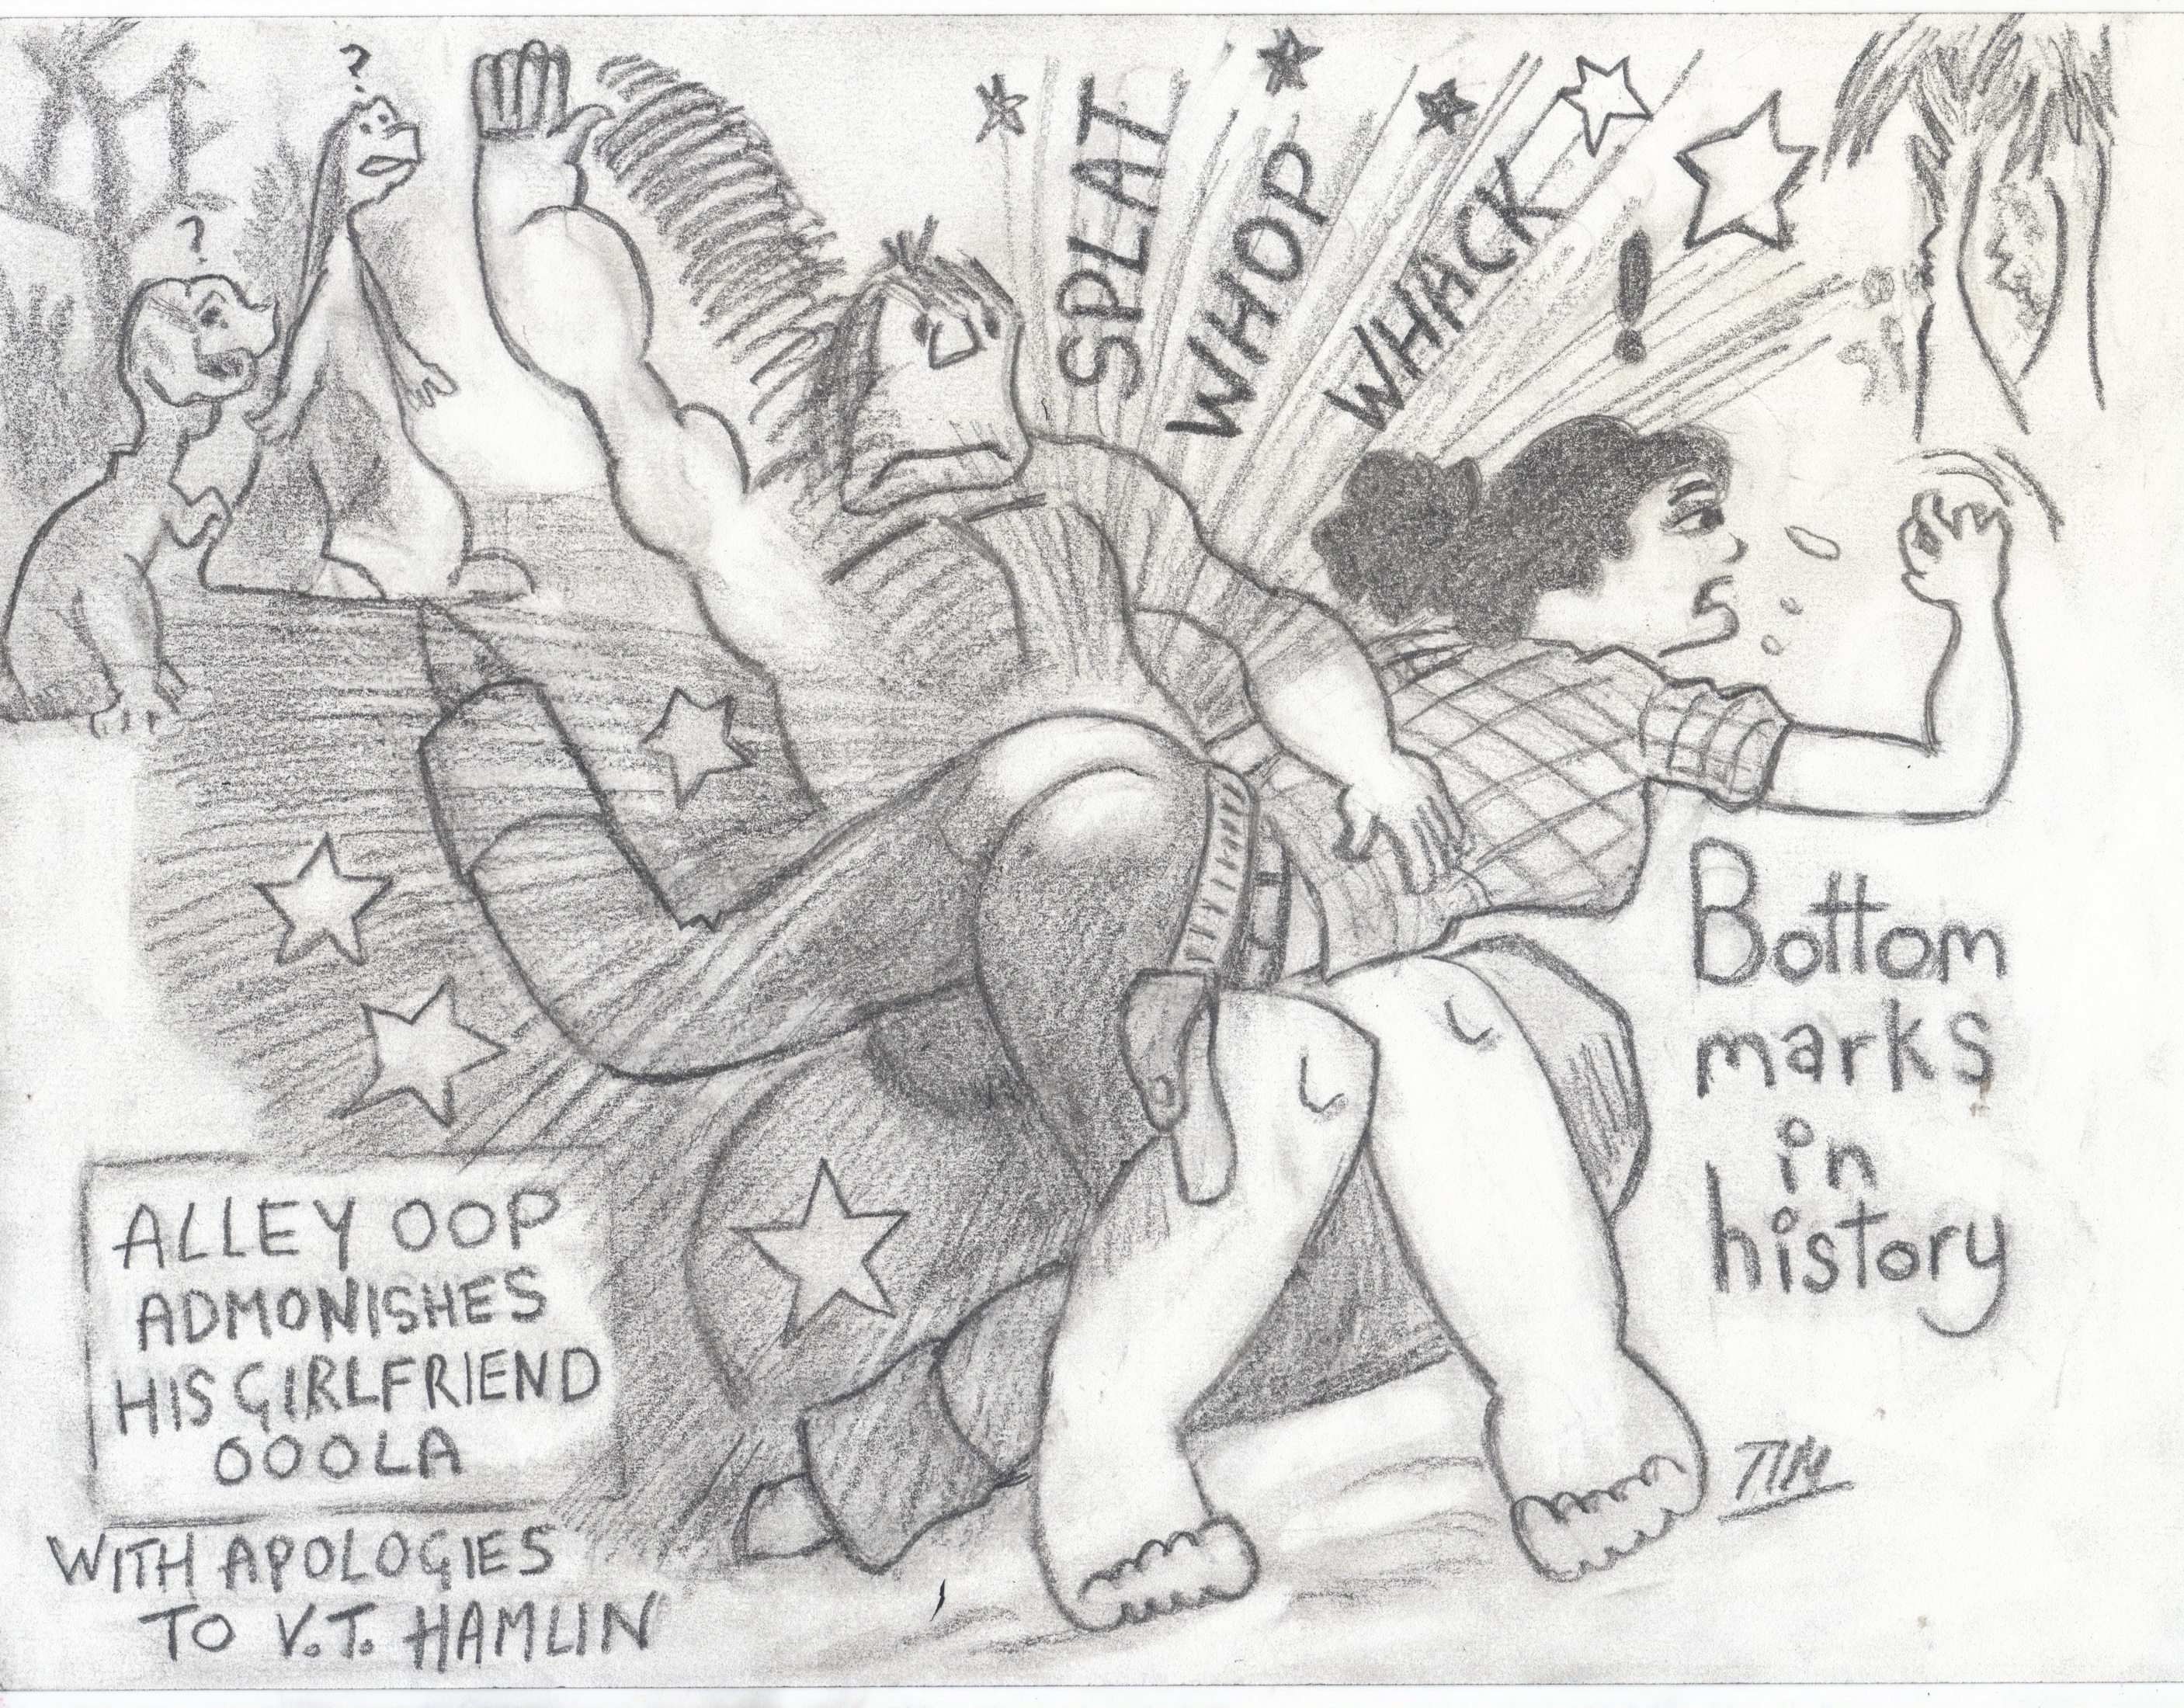 ?
?
SPLAT
WHOP
WHACK
!
Bottom
marks
in
history
ALLEY OOP
ADMONISHES
HIS GIRLFRIEND
OOOLA
WITH APOLOGIES
TO V.T. HAMLIN
TIM